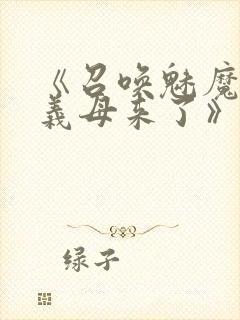 《召唤魅魔
義母来了》
绿子